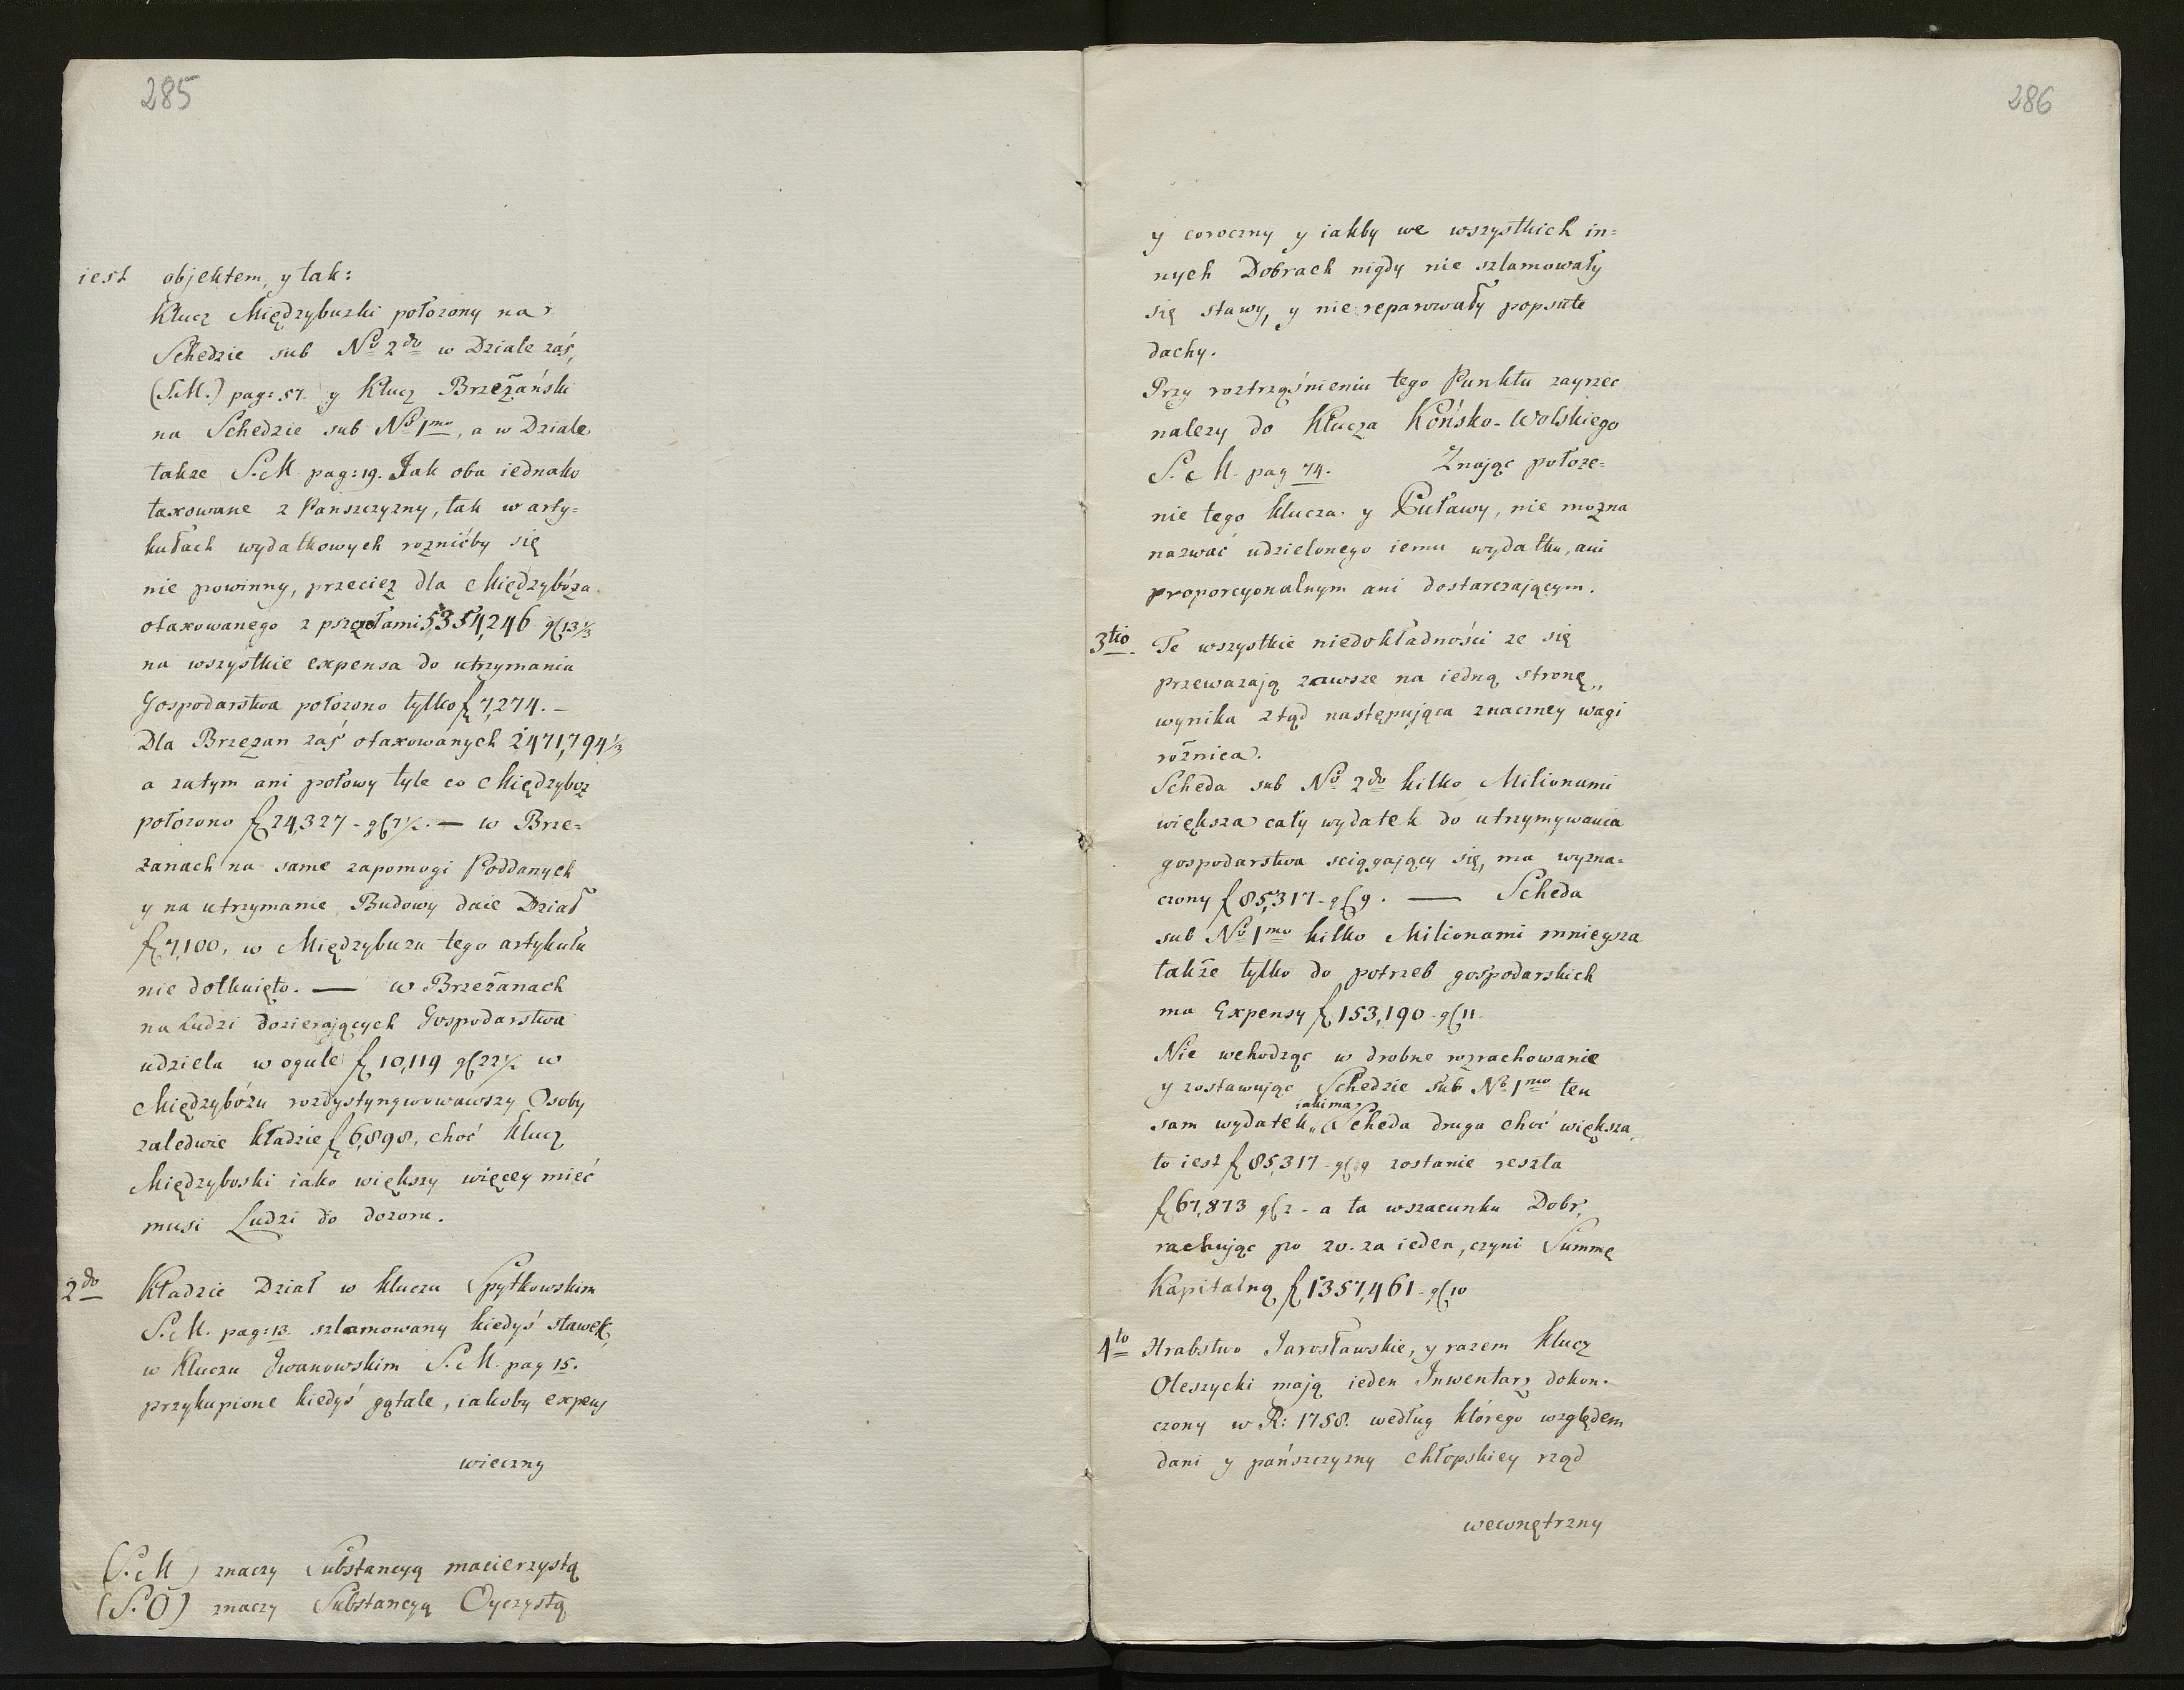 285
iest objektem, y tak:
Klucz Międzybuzki położony na
Schedzie sub No 2do w Dziale zaś,
(S.M.) pag: 57. y Klucz Brzeżański
na Schedzie sub No 1mo, a w Dziale
takze S.M. pag: 19. Jak oba iednako
taxowane z Panszczyzny, tak w arty=
kułach wydatkowych roznićby się
nie powinny, przecież dla Międzyboża
otaxowanego z pszczołami 5354,246 g 13 1/3
na wszystkie expensa do utrzymania
Gospodarstwa położono tylko f 7,274. —
Dla Brzezan zaś otaxowanych 2471,794 1/3
a zatym ani połowy tyle co Międzyboz
położono f 24,327 - g 7 1/2. — w Brze=
żanach na same zapomogi Poddanych
y na utrzymanie Budowy daie Dział
f 7,100, w Międzybuzu tego artykułu
nie dotknięto. — w Brzeżanach
na Ludzi dozierających Gospodarstwa
udziela w ogule f 10,119 g 22 1/2 w
Międzybóżu rozdystyngwowawszy Osoby
zaledwie kładzie f 6,898, choć klucz
Międzyboski iako większy więcey mieć
musi Ludzi do dozoru.
2do Kładzie Dział w kluczu Spytkowskim
S.M. pag: 13. szlamowany kiedyś stawek,
w Kluczu Jwanowskim S.M. pag 15.
przykupione kiedyś gątale, iakoby expens
wieczny
(S.M) znaczy Substancyą macierzystą
(S.O) znaczy Substancyą Oyczystą
286
y coroczny y iakby we wszystkich in=
nych Dobrach nigdy nie szlamowały
się stawy, y nie reparowały popsute
dachy.
Przy roztrząśnieniu tego Punktu zayrzec
nalezy do Klucza Końsko-Wolskiego
S.M. pag 74. Znając położe=
nie tego klucza y Puławy, nie można
nazwać udzielonego iemu wydatku, ani
proporcyonalnym ani dostarczającym.
3tio. Te wszystkie niedokładności ze się
przeważają zawsze na iedną stronę,,
wynika ztąd następująca znaczney wagi
rożnica.
Scheda sub No 2do kilko Milionami
większa cały wydatek do utrzymywania
gospodarstwa sciągający się, ma wyzna=
czony f 85,317 - g 9. — Scheda
sub No 1mo kilko Milionami mnieysza
także tylko do potrzeb gospodarskich
ma Expensy f 153,190 - g 11
Nie wchodząc w drobne rozrachowanie
y zostawując Schedzie sub No 1mo ten
iaki ma
sam wydatek,, Scheda druga choć większa,
to iest f 85,317 - g 9 zostanie reszta
f 67,873 g 2 - a ta w szacunku Dobr,
rachując po 20. za ieden, czyni Summę
Kapitalną f 1357,461 - g 10
4to Hrabstwo Jarosławskie, y razem Klucz
Oleszycki mają ieden Jnwentarz dokon=
czony w R: 1758. według którego względem
dani y pańszczyzny chłopskiey rząd
wewnętrzny